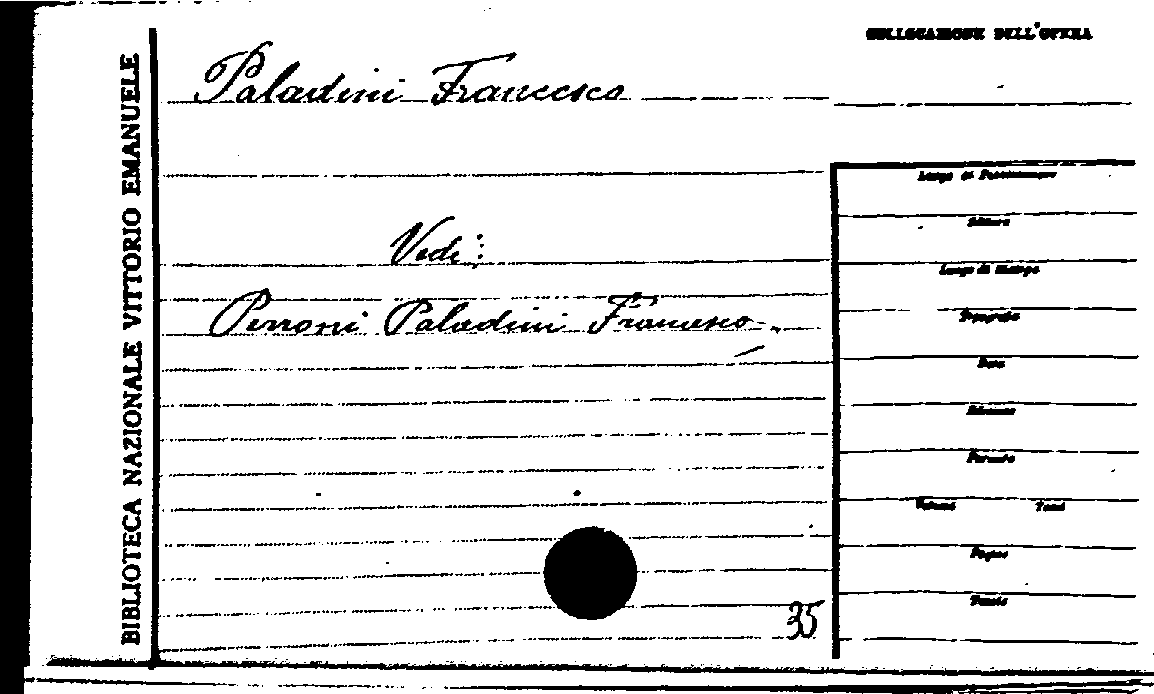 BIBLIOTECA NAZIONALE VITTORIO EMANUELE
COLLOCAZIONE DELL'OPERA
Paladini Francesco
Vedi:
Perroni Paladini Francesco.
35
Luogo di Pubblicazione
Editore
Luogo di Stampa
Tipografia
Data
Edizione
Formato
Volumi Tomi
Pagine